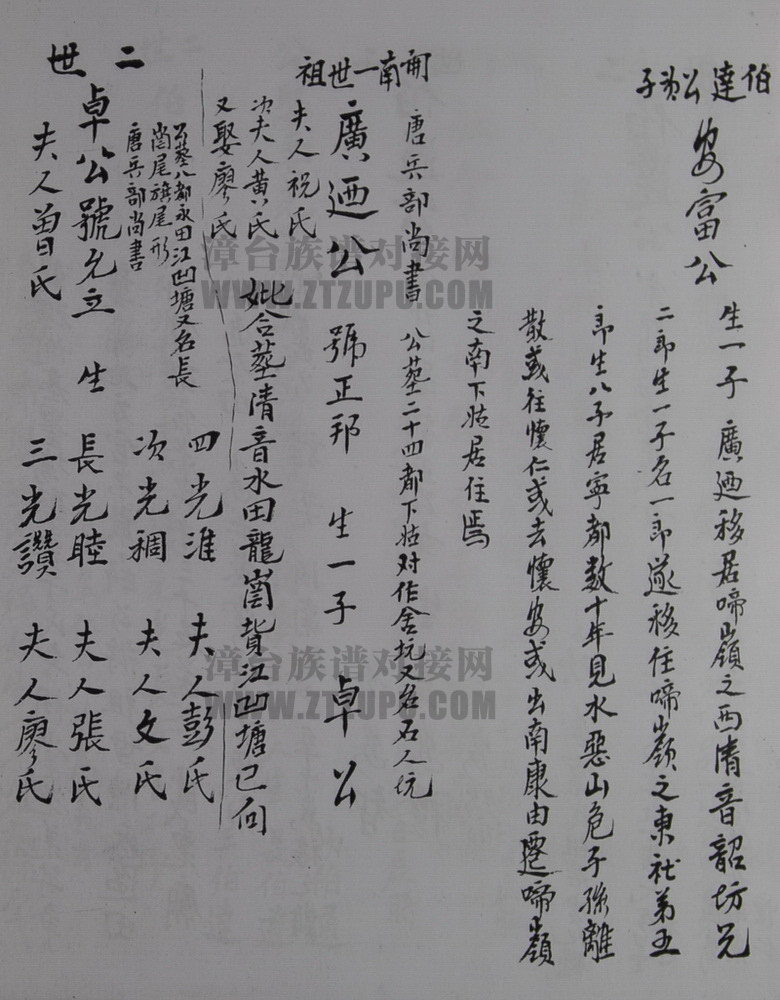 伯達公㳄子
安富公
生一子廣廼移居啼嶺之西清音韶坊兄
二郎生一子名一郎遂移住啼嶺之東社第五
郎生八子居寧都数十年見水惡山危子孫離
散或往懷仁或去懷安或出南康由遷啼嶺
之南下姑居住焉
開南一世祖
唐兵部尚書 公葬二十四都下姑对作舍坑又名石人坑
廣廼公 號正邦 生一子 卓公
夫人祝氏
次夫人黄氏 妣合葬清音水田龍崗背江凹塘巳向
又娶廖氏
二世
公葬八都永田江凹塘又名長
崗尾旗尾形
唐兵部尚書
卓公號允立 生
夫人曾氏
四光淮 夫人彭氏
次光稠 夫人文氏
長光睦 夫人張氏
三光讚 夫人廖氏
漳台族谱对接网
WWW.ZTZUPU.COM
漳台族谱对接网
WWW.ZTZUPU.COM